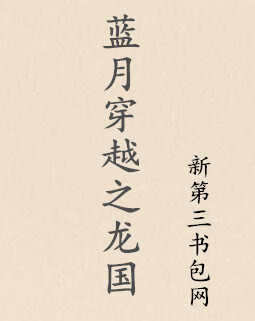 蓝月穿越之龙国
新第三书包网